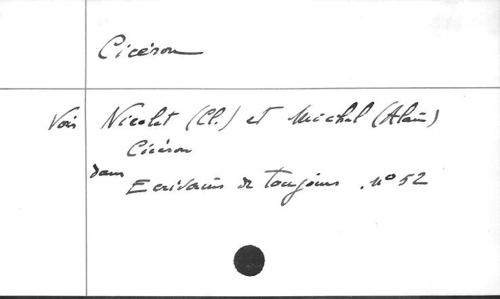 Cicéron
Voir Nicolet (Cl.) et Michel (Alain)
Cicéron
dans
Ecrivains de toujours. n° 52